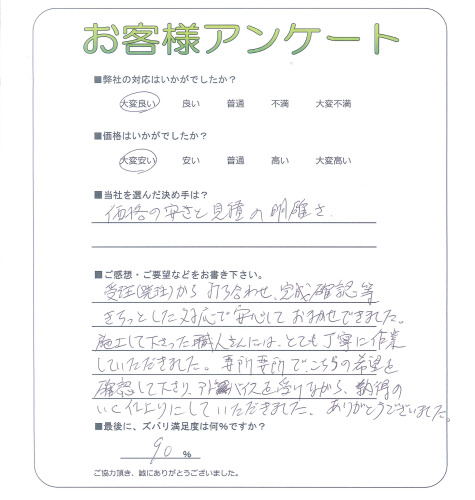 お客様アンケート
■弊社の対応はいかがでしたか?
大変良い 良い 普通 不満 大変不満
■価格はいかがでしたか?
大変安い 安い 普通 高い 大変高い
■当社を選んだ決め手は?
価格の安さと見積の明確さ
■ご感想・ご要望などをお書き下さい。
受注(発注)から打ち合わせ、完成確認等
きちっとした対応で安心しておまかせできました。
施工して下さった職人さんには、とても丁寧に作業
していただきました。要所要所で、こちらの希望を
確認して下さり、アドバイスを受けながら、納得の
いく仕上りにしていただきました。ありがとうございました。
■最後に、ズバリ満足度は何%ですか?
90 %
ご協力頂き、誠にありがとうございました。